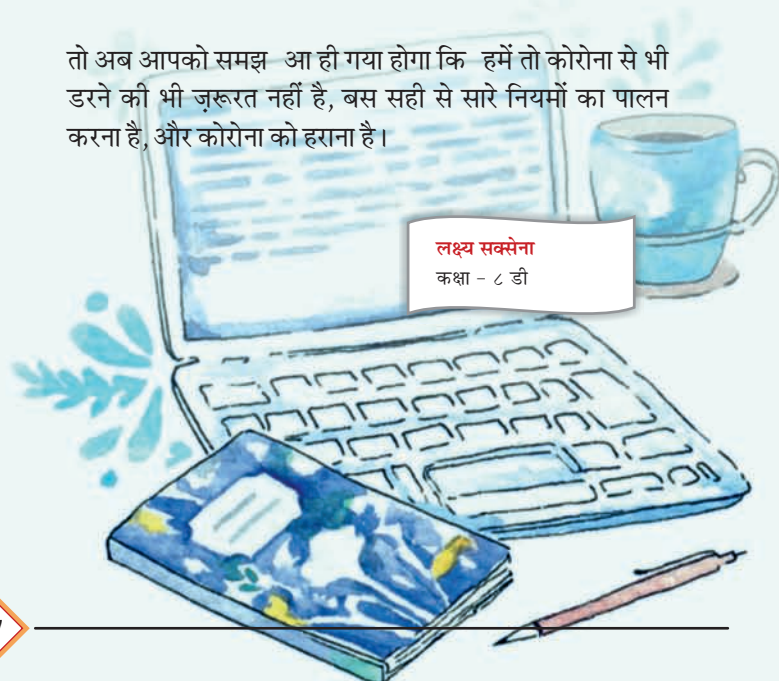 तो अब आपको समझ आ ही गया होगा कि हमें तो कोरोना से भी
डरने की भी ज़रूरत नहीं है, बस सही से सारे नियमों का पालन
करना है, और कोरोना को हराना है।
लक्ष्य सक्सेना
कक्षा - ८ डी